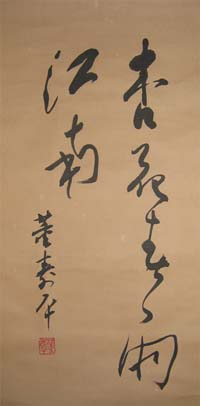 杏花春雨
江南
董寿平